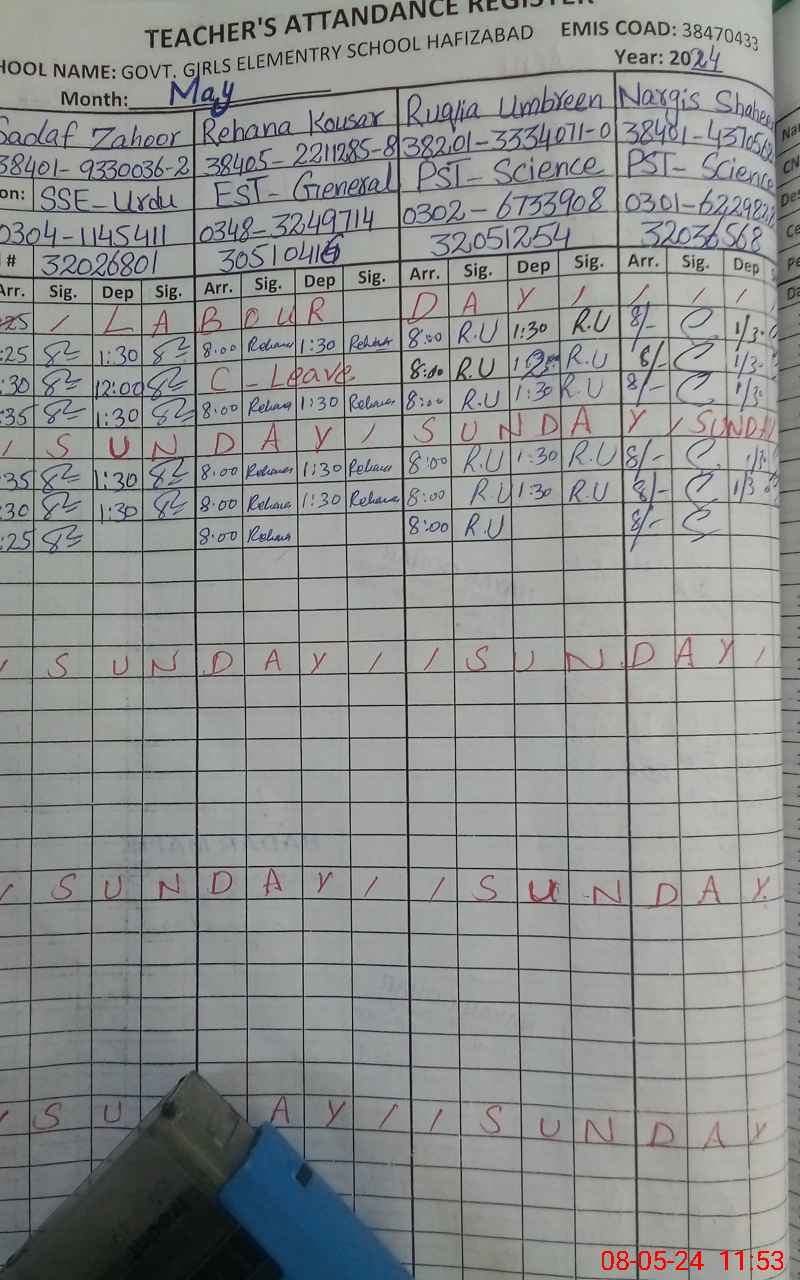 TEACHER'S ATTANDANCE REGISTER
HOOL NAME: GOVT. GIRLS ELEMENTRY SCHOOL HAFIZABAD EMIS COAD: 38470433
Month: May Year: 2024
Sadaf Zahoor Rehana Kousar Ruqia Umbreen Nargis Shaheen
38401-9330036-2 38405-2211285-8 38201-3334071-0 38401-4370562
on: SSE-Urdu EST-General PST-Science PST-Science
0304-1145411 0348-3249714 0302-6733908 0301-6229828
# 32026801 30510416 32051254 32036568
Arr. Sig. Dep Sig. Arr. Sig. Dep Sig. Arr. Sig. Dep Sig. Arr. Sig. Dep
:25 / L A B O U R D A Y / / / /
:25 1:30 8.00 Rehana 1:30 Rehana 8:00 R.U 1:30 R.U 8/- 1/3-
:30 12:00 C-Leave 8:00 R.U R.U 8/- 1/3-
:35 1:30 8:00 Rehana 1:30 Rehana 8:00 R.U 1:30 R.U 8/- 1/3-
/ S U N D A Y / S U N D A Y / SUNDAY
:35 1:30 8.00 Rehana 1:30 Rehana 8:00 R.U 1:30 R.U 8/-
:30 1:30 8:00 Rehana 1:30 Rehana 8:00 R.U 1:30 R.U 8/- 1/3
:25 8:00 Rehana 8:00 R.U 8/-
/ S U N D A Y / / S U N D A Y /
/ S U N D A Y / / S U N D A Y
/ S U A Y / / S U N D A Y
08-05-24 11:53